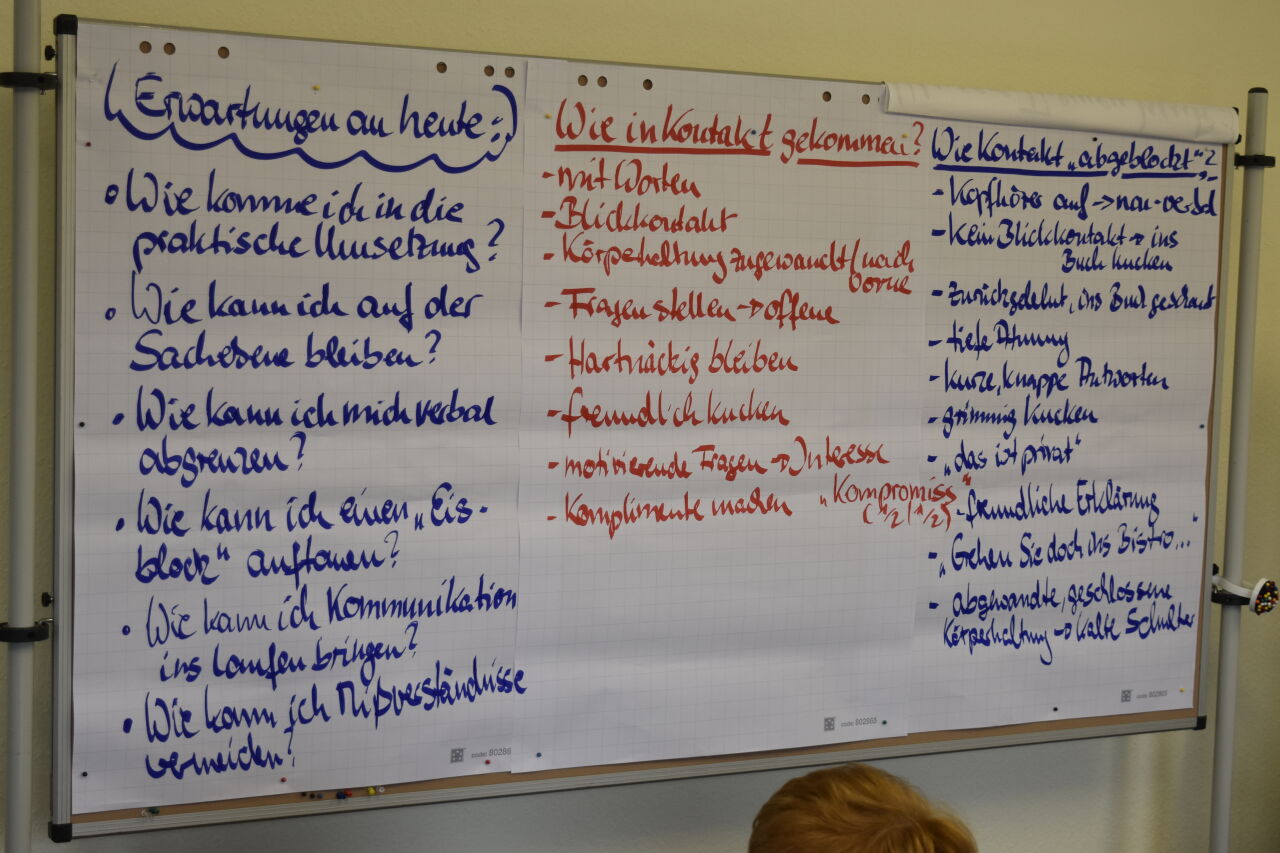 Erwartungen an heute :)
• Wie komme ich in die
praktische Umsetzung?
• Wie kann ich auf der
Sachebene bleiben?
• Wie kann ich mich verbal
abgrenzen?
• Wie kann ich einen „Eis-
block“ auftauen?
• Wie kann ich Kommunikation
ins laufen bringen?
• Wie kann ich Mißverständnisse
vermeiden?
code: 80286
Wie in Kontakt gekommen?
- mit Worten
- Blickkontakt
- Körperhaltung zugewandt / nach
vorne
- Fragen stellen → offene
- Hartnäckig bleiben
- freundlich kucken
- motivierende Fragen → Interesse
- Komplimente machen „Kompromiss“
(1/2 / 1/2)
code: 802863
Wie Kontakt „abgeblockt“?
- Kopfhörer auf →
- kein Blickkontakt → ins
Buch kucken
- zurückgelehnt, ins Buch geschaut
- tiefe Atmung
- kurze, knappe Antworten
- grimmig kucken
- „das ist privat“
- freundliche Erklärung
- „Gehen Sie doch ins Bistro...“
- abgewandte, geschlossene
Körperhaltung → kalte Schulter
code: 802863